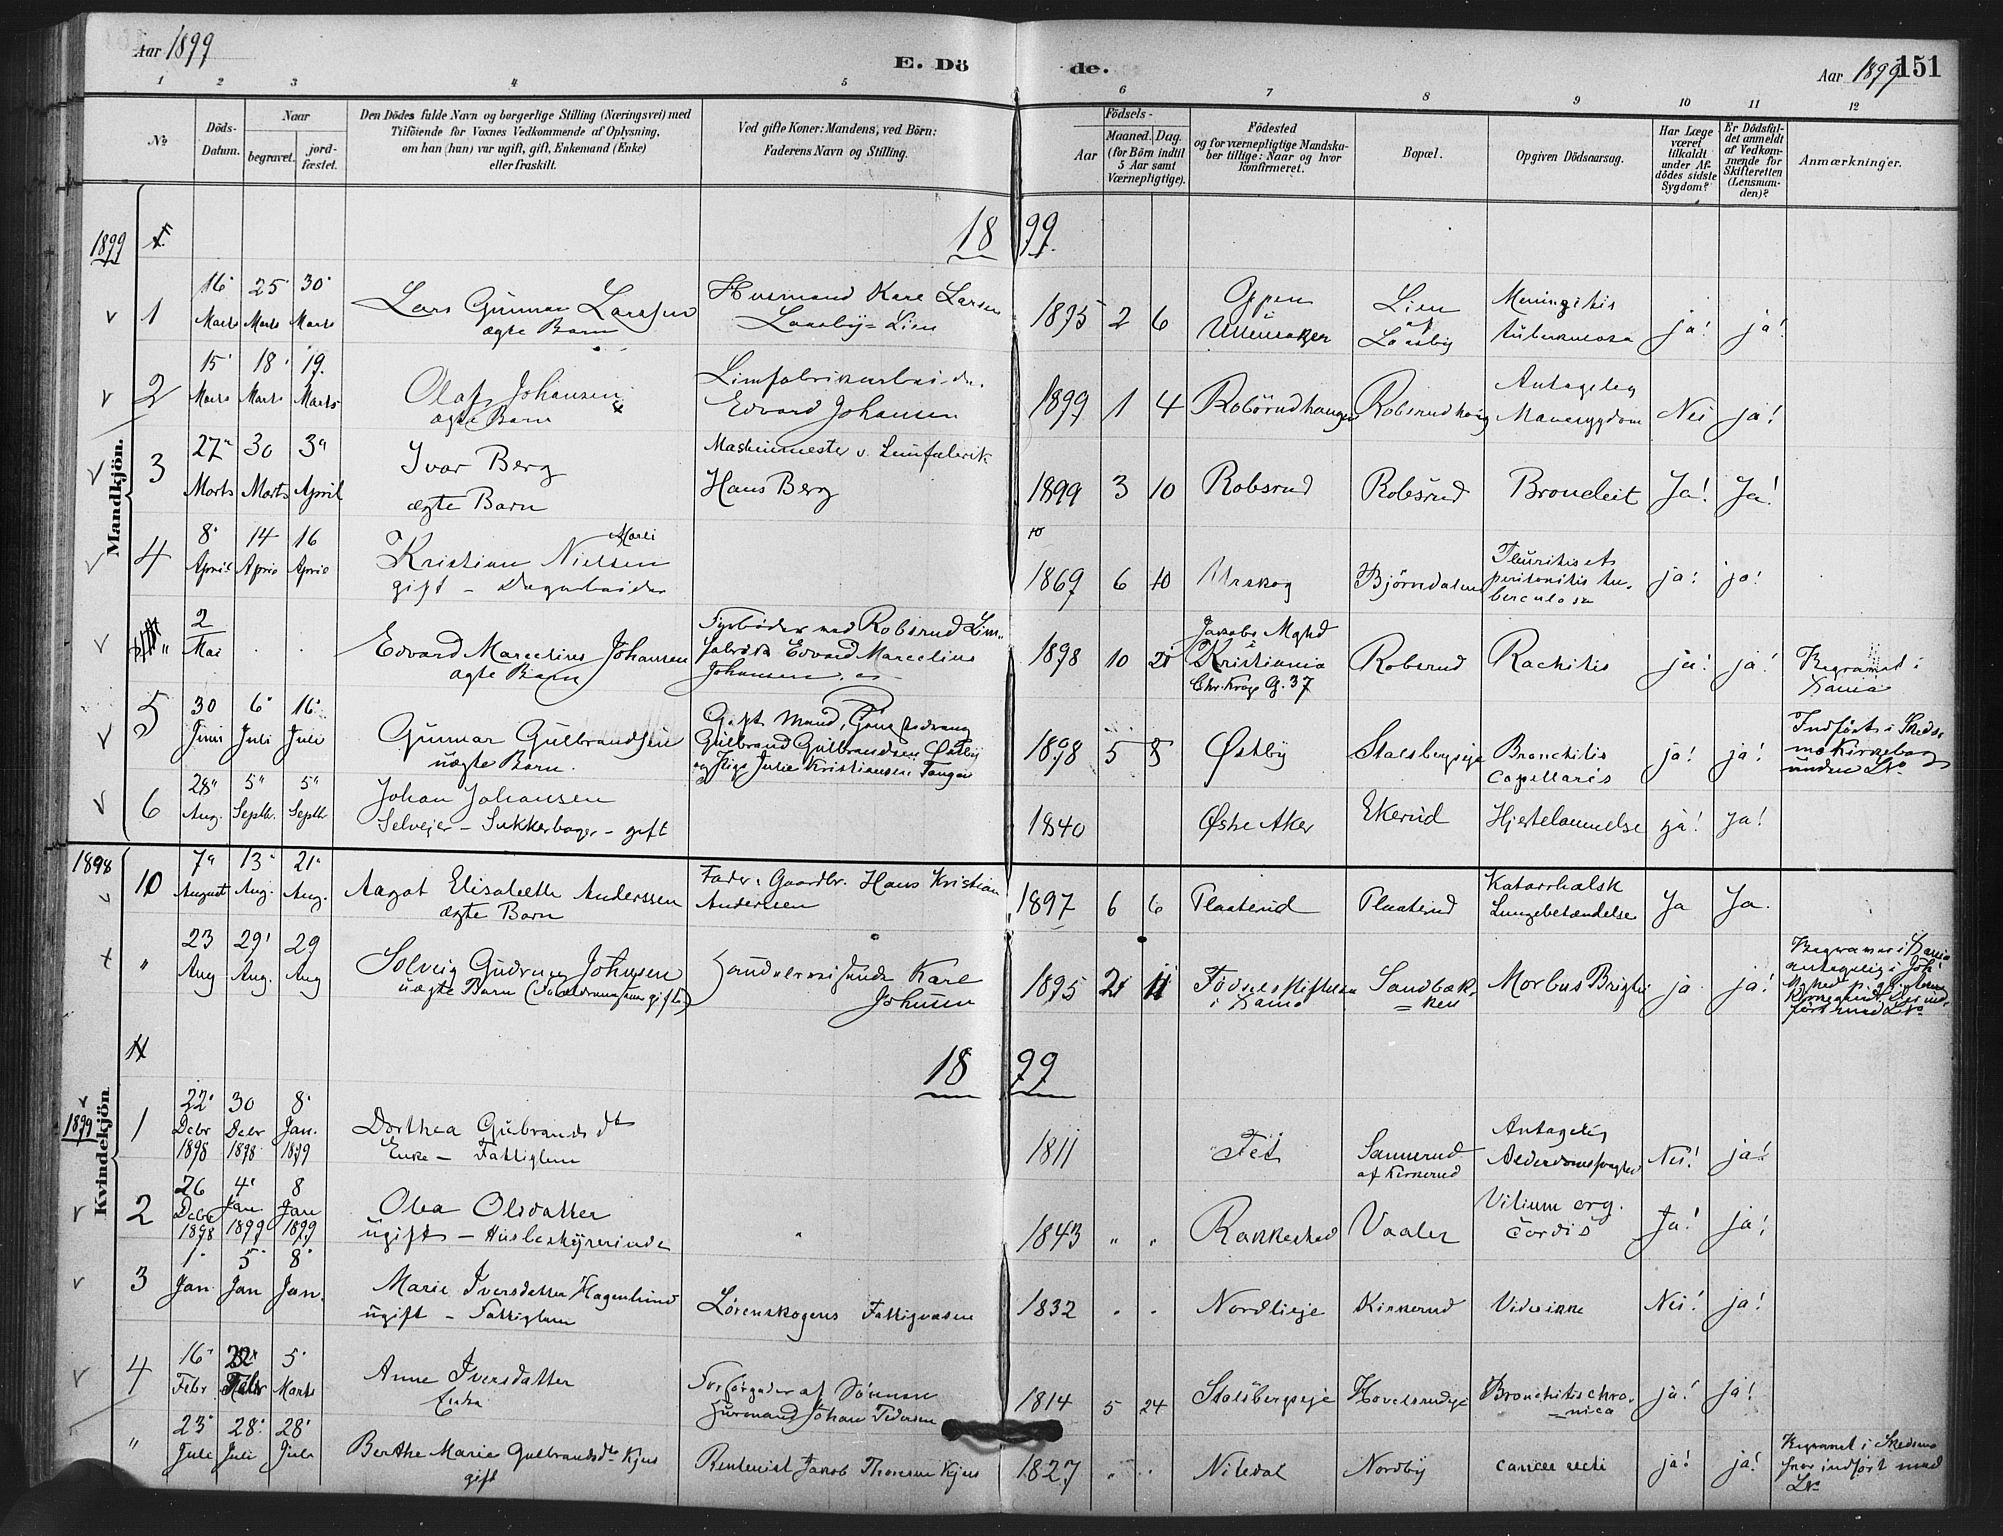 Aar 1899
E. Dö
de.
Aar 1899
151
1 2 3 4 5 6 7 8 9 10 11 12
No.
Döds-
Datum.
Naar
begravet.
jord-
fæstet.
Den Dödes fulde Navn og borgerlige Stilling (Næringsvei) med
Tilföiende for Voxnes Vedkommende af Oplysning,
om han (hun) var ugift, gift, Enkemand (Enke)
eller fraskilt.
Ved gifte Koner: Mandens, ved Börn:
Faderens Navn og Stilling.
Födsels-
Aar
Maaned. Dag.
(for Börn indtil
5 Aar samt
Værnepligtige).
Födested
og for værnepligtige Mandska-
ber tillige: Naar og hvor
konfirmeret.
Bopæl.
Opgiven Dödsaarsag.
Har Læge
været
tilkaldt
under Af-
dödes sidste
Sygdom?
Er Dödsfal-
det anmeldt
af Vedkom-
mende for
Skifteretten
(Lensman-
den)?
Anmærkninger.
Mandkjön.
1899
18 99.
1
16 25 30
Marts Marts Marts
Lars Gunnar Larssen
ægte Barn
Husmand Kare Larsen
Laasby-Lien
1895 2 6
Oppen
i
Ullensaker
Lien
af
Laasby
Meningitis
tuberkulosa
ja! ja!
2
15 18 19.
Marts Marts Marts
Olaf Johansen
ægte Barn
Edvard Johansen
1899 1 4
Robsrudhaugen
Robsrudhaug
Antagelig
Mavesygdom
Nei ja!
3
27 30 3
Marts Marts April
Ivar Berg
ægte Barn
Maskinmester v. Limfabrik
Hans Berg
1899 3 10
Robsrud
Robsrud
Bronchit
Ja! Ja!
4
8 14 16
April April April
Kristian Nielsen
gift - Dagarbeider
1869 6 10
Urskog
Björndalen
peritonitis tu-
berculosa
ja! ja!
"
2
Mai
Edvard Marcelius Johansen
ægte Barn
Fyrböder ved Robsrud Lim-
fabrik Edvard Marcelius
Johansen
1898 10 21
Jakobs Mghd
i
Kristiania
Chr. Krogs G. 37
Robsrud
Rachitis
ja! ja!
Begravet i
Xania
5
30 6 16
Juni Juli Juli
Gunnar Gulbrandsen
uægte Barn.
Gift Mand,
Gulbrand Gulbrandsen Østby
og Pige Julie Kristiansen Tangen
1898 5 8
Østby
Stalsbergeje
Bronchitis
Capellaris
ja! ja!
Indført i Skeds-
mo Kirkebog
uden No
6
28 5 5
Aug. Septb. Septb
Johan Johansen
Selvejer - Sukkerbager - gift
1840
Østre Aker
Ekerud
Hjertelammelse
ja! Ja!
1898
10
7 13 21
August Aug. Aug.
Aagot Elisabeth Anderssen
ægte Barn
Fader: Gaardbr. Hans Kristian
Andersen
1897 6 6
Plaaterud
Plaaterud
Katarrhalsk
Lungebetændelse
Ja Ja.
"
23 29 29
Aug Aug. Aug
Solveig Gudrun Johnsen
uægte Barn
Handelsreisende Karl
Johnsen
1895 2 11
Fødselsstiftelsen
i Xania
Sandbæk-
ken
Morbus Brightii
ja ja!
18 99
Kvindekjön
1899
1
22 30 8
Debr Debr Jan.
1898 1898 1899
Dorthea Gulbrandsdt
Enke - Fattiglem
1811
Fet
Sannerud
af Kirkerud
Antagelig
Alderdomssvaghed
Nei! ja!
2
26 4 8
Debr Jan Jan
1898 1899 1899
Olea Olsdatter
ugift - Husbestyrerinde
1843 " "
Rakkestad
Vaaler
Vitium org.
cordis
Ja! ja!
3
1 5 8
Jan. Jan Jan.
Marie Iversdatter Hagenlund
ugift - Fattiglem
Lørenskogens Fattigvæsen
1832
Nordlieje
Kirkerud
Vides ikke
Nei! ja!
4
16 22 5
Febr Febr Marts
Anne Iversdatter
Enke
Forsørgedes af Sønnen
Husmand Johan Pedersen
1814 5 24
Stalsbergeje
Hovelsrudeje
Bronchitis chro-
nica
ja! ja!
"
23 28 28
Juli Juli Juli
Berthe Marie Gulbrandsdt Kjus
gift
Rentenist Jakob Thoresen Kjus
1827
Nitedal
Nordby
cancer recti
ja! ja!
Begravet i Skedsmo
hvor indført med
No